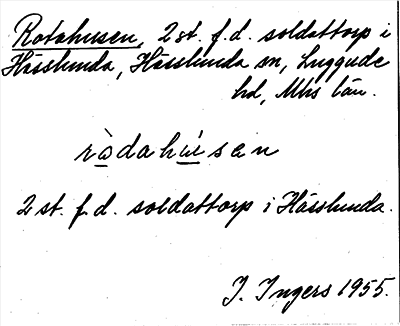 Rotahusen, 2 st. f.d. soldattorp i
Hässlunda, Hässlunda sn, Luggude
hd, Mhs län.
ràdahúsen
2 st. f.d. soldattorp i Hässlunda.
I. Ingers 1955.